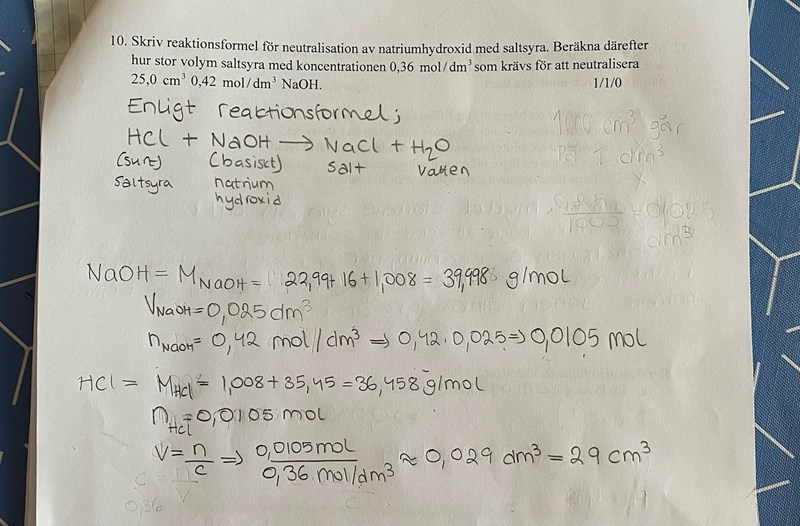 10. Skriv reaktionsformel för neutralisation av natriumhydroxid med saltsyra. Beräkna därefter
hur stor volym saltsyra med koncentrationen 0,36 mol/dm³ som krävs för att neutralisera
25,0 cm³ 0,42 mol/dm³ NaOH. 1/1/0
Enligt reaktionsformel;
HCl + NaOH → NaCl + H₂O
(sur) (basiskt) salt vatten
saltsyra natrium
hydroxid
1000 cm³ går
på 1 dm³
x
1000 = 0,025
dm³
NaOH = M_NaOH = 22,99+16+1,008 = 39,998 g/mol
V_NaOH = 0,025 dm³
n_NaOH = 0,42 mol/dm³ ⇒ 0,42·0,025 ⇒ 0,0105 mol
HCl = M_HCl = 1,008+35,45 = 36,458 g/mol
n_HCl = 0,0105 mol
V = n/c ⇒ 0,0105 mol / 0,36 mol/dm³ ≈ 0,029 dm³ = 29 cm³
c = n/V
0,36